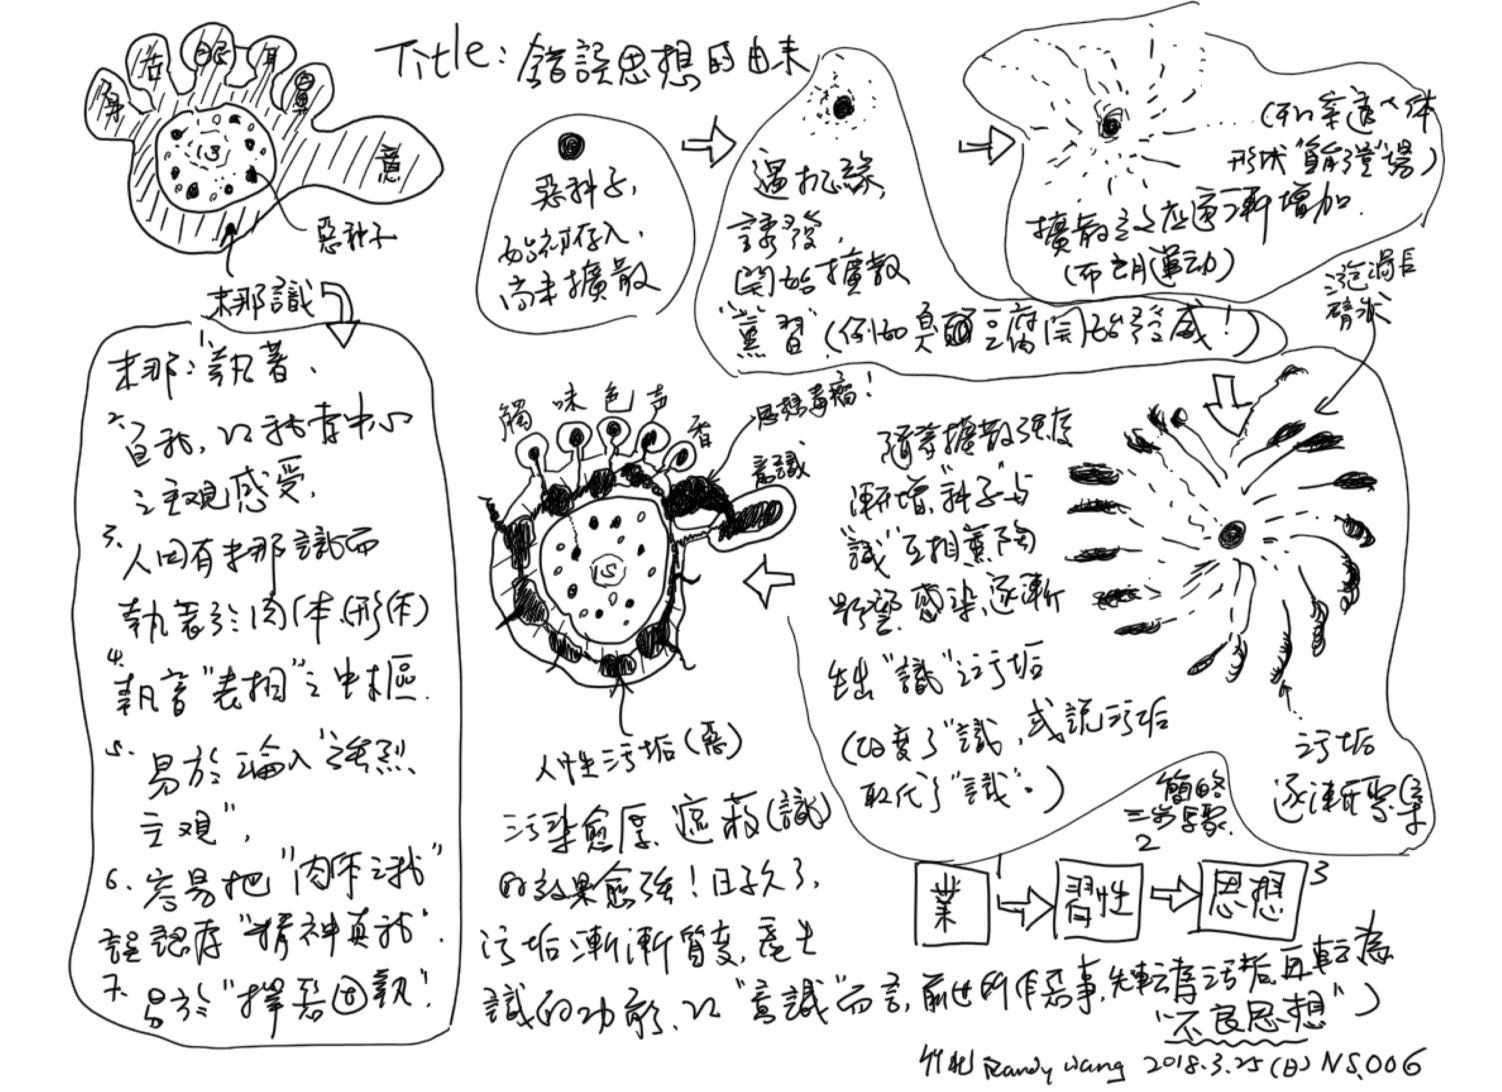 Title: 錯誤思想的由來
身
舌
眼
耳
鼻
意
惡種子
末那識
1.
末那:執著、
2.自我,以我為中心
之主觀感受,
3.人因有末那識而
執著於肉体(形体)
4.執音"表相"之中樞.
5.易於淪入"強烈
主觀",
6.容易把"肉体之我"
誤認為"精神真我".
7.易於"擇惡固執".
惡种子,
始初存入,
尚未擴散
遇机緣,
誘發,
開始擴散
"薰習"(例如臭豆腐開始發威!)
形狀"能量"場)
擴散效应逐漸增加.
(布朗運动)
漩渦長
臂狀
隨著擴散強度
漸增,"种子"与
"識"互相薰陶
影響.感染,逐漸
生出"識"之污垢
(改变了"識",或説污垢
取代了"識"。)
污垢
逐漸聚集
觸
味
色
声
香
思想毒瘤!
意識
人性污垢(惡)
污染愈厚,遮蔽(識)
的效果愈強!日子久了,
污垢漸漸質变,產生
識的功能,以"意識"而言,前世所作惡事,先轉為污垢,再轉為
"不良思想")
簡略
三步驟.
1
業
2
習性
3
思想
竹北 Randy Wang 2018.3.25(日) NS.006